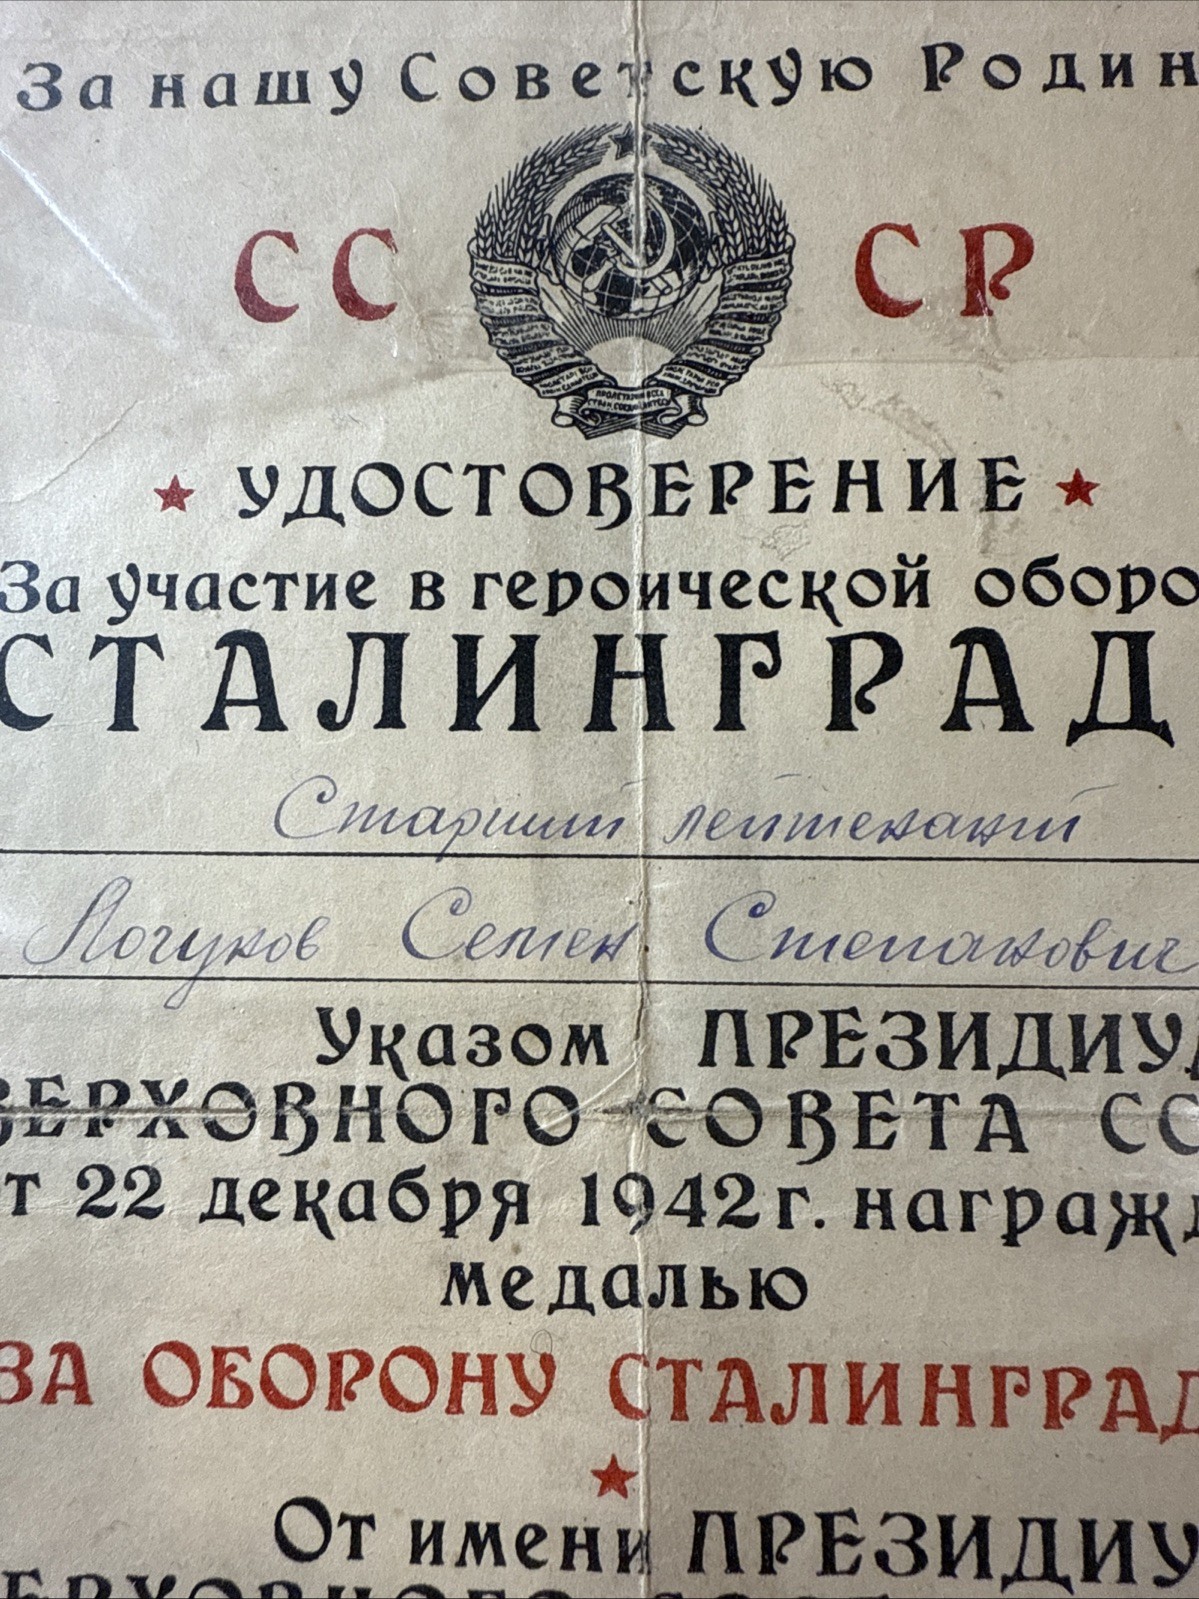 За нашу Советскую Родин
СС СР
ПРОЛЕТАРИИ ВСЕХ
СТРАН, СОЕДИНЯЙТЕСЬ
УДОСТОВЕРЕНИЕ
За участие в героической оборо
СТАЛИНГРАД
Старший лейтенант
Логунов Семен Степанович
Указом ПРЕЗИДИУМ
ВЕРХОВНОГО СОВЕТА СС
т 22 декабря 1942 г. награжд
медалью
ЗА ОБОРОНУ СТАЛИНГРАД
От имени ПРЕЗИДИУ
ЕРХОВНОГО СОВЕ